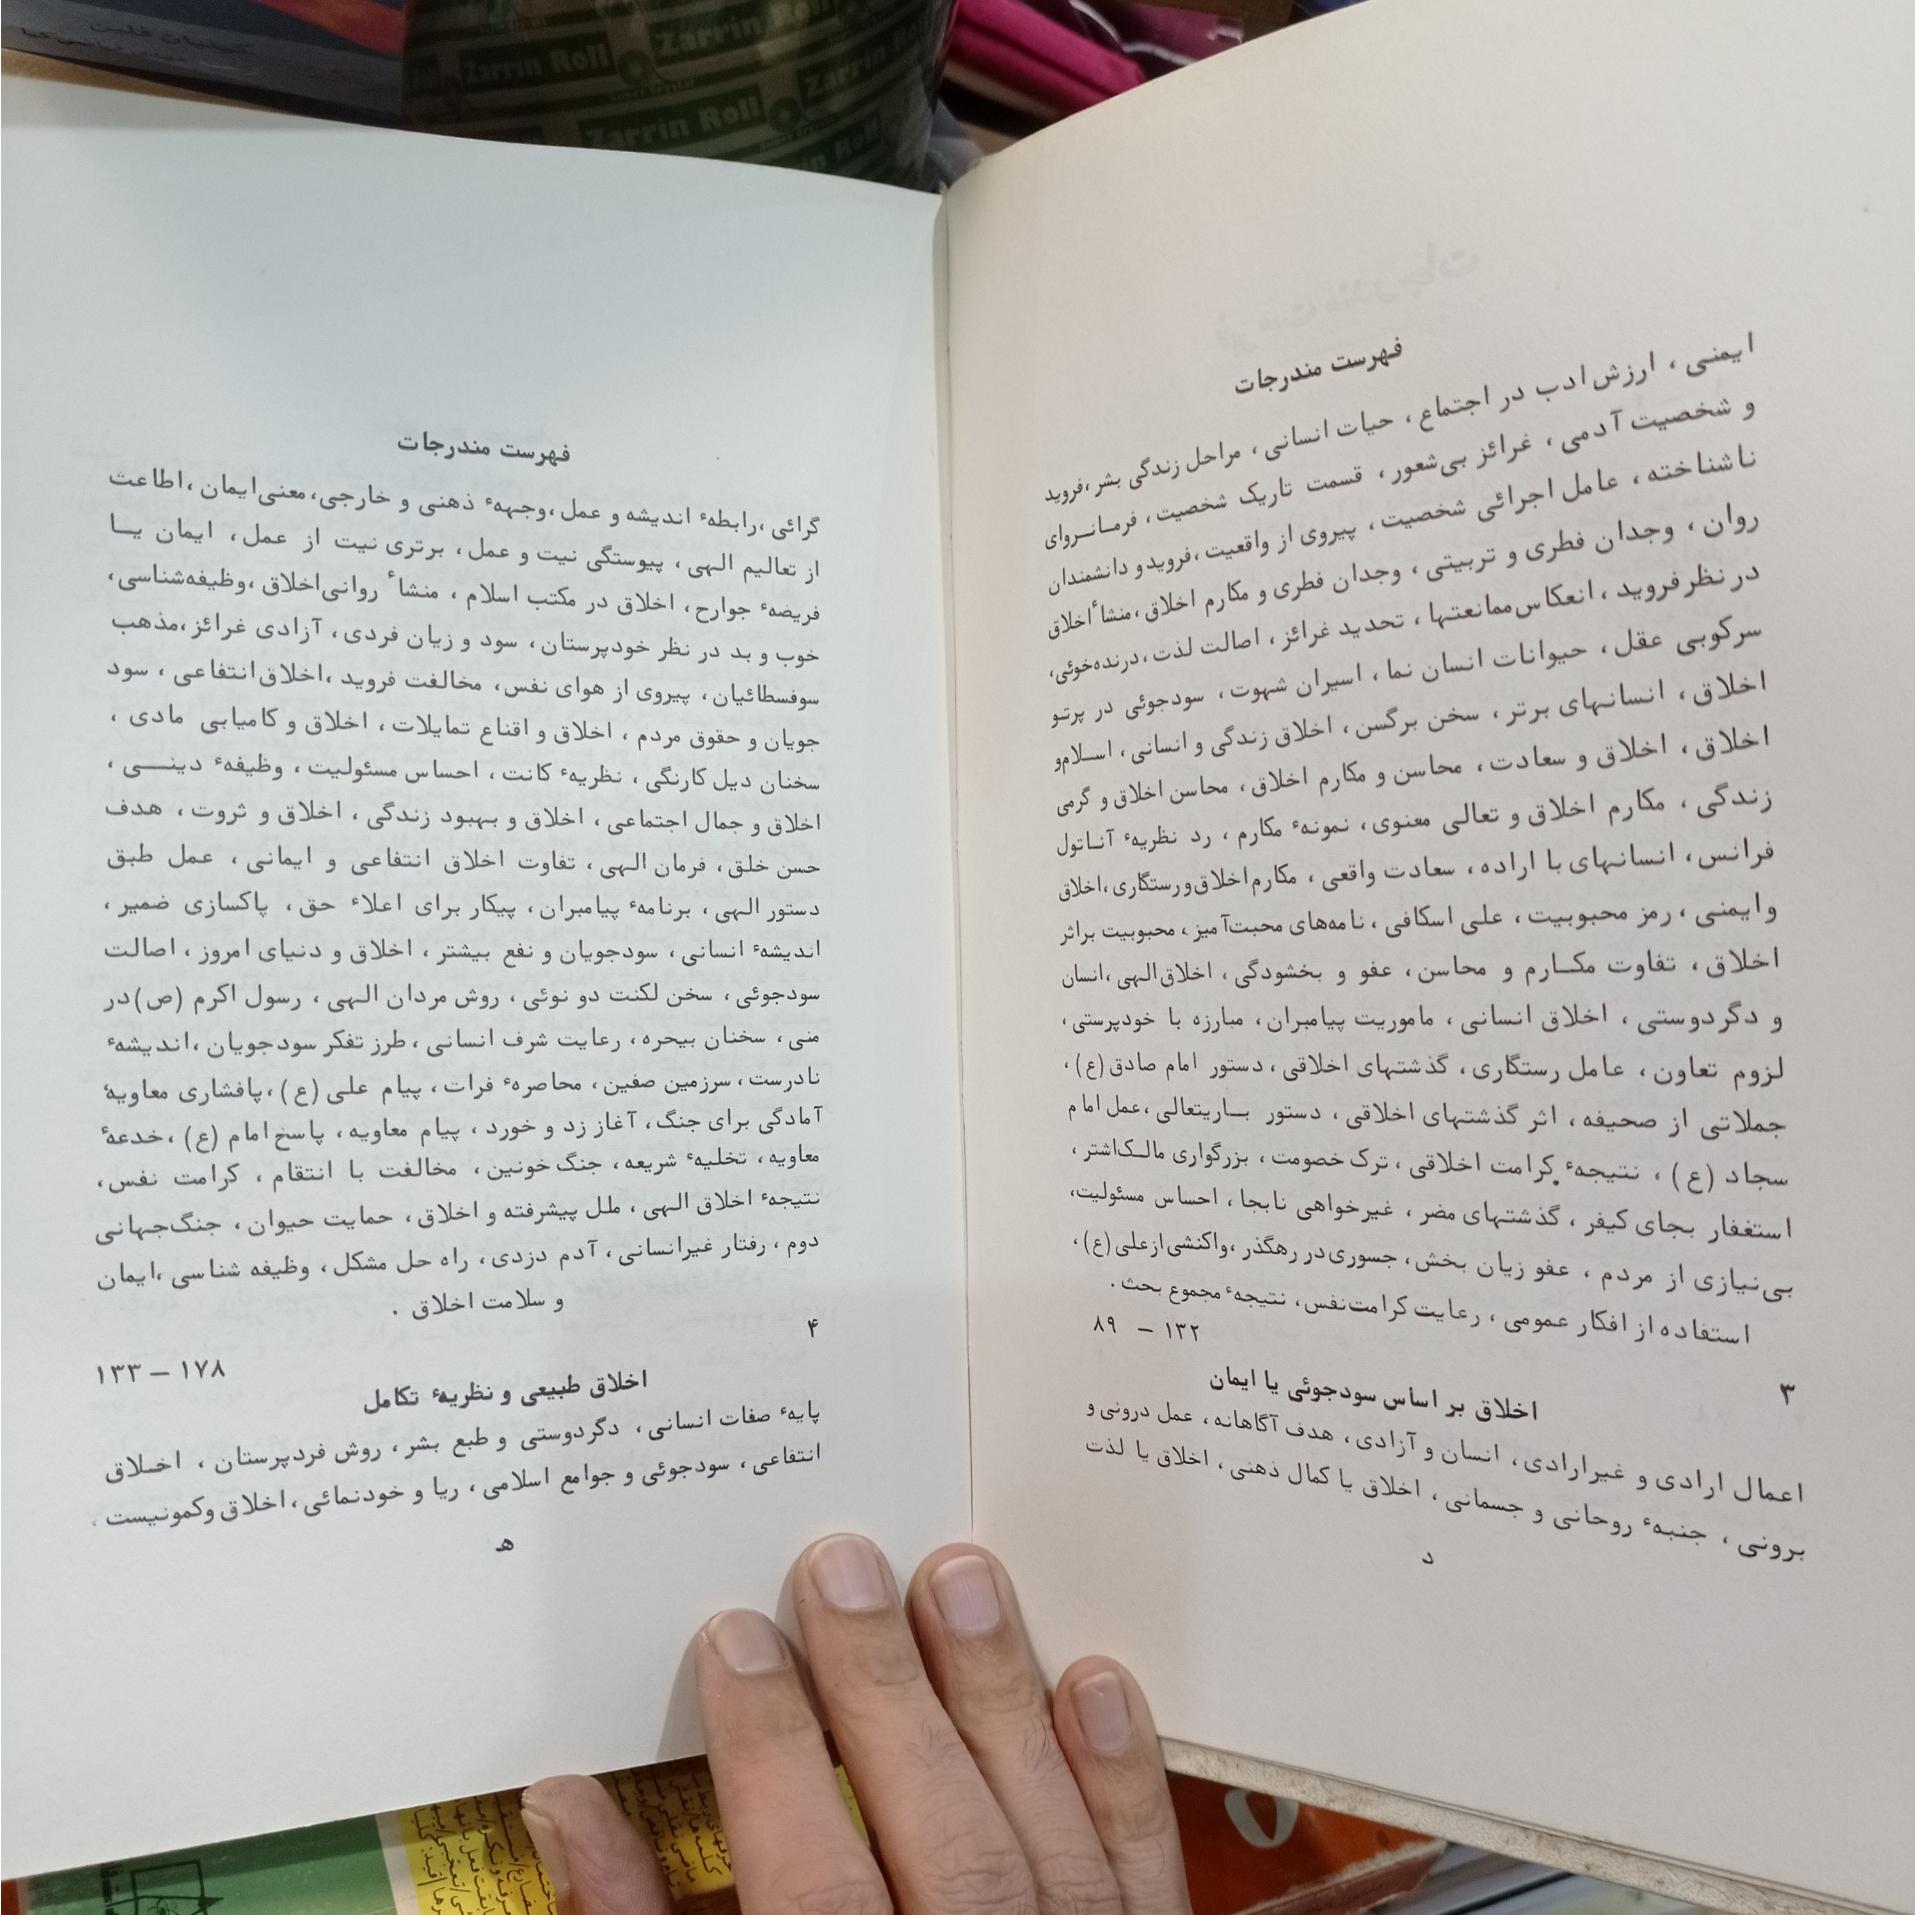 فهرست مندرجات
ایمنی ، ارزش ادب در اجتماع ، حیات انسانی ، مراحل زندگی بشر ،فروید
و شخصیت آدمی ، غرائز بی‌شعور ، قسمت تاریک شخصیت ، فرمانروای
ناشناخته ، عامل اجرائی شخصیت ، پیروی از واقعیت ،فروید و دانشمندان
روان ، وجدان فطری و تربیتی ، وجدان فطری و مکارم اخلاق ،منشاٴ اخلاق
در نظر فروید ، انعکاس ممانعتها ، تحدید غرائز ، اصالت لذت ،درنده‌خوئی،
سرکوبی عقل ، حیوانات انسان نما ، اسیران شهوت ، سودجوئی در پرتو
اخلاق ، انسانهای برتر ، سخن برگسن ، اخلاق زندگی و انسانی ، اسلام و
اخلاق ، اخلاق و سعادت ، محاسن و مکارم اخلاق ، محاسن اخلاق و گرمی
زندگی ، مکارم اخلاق و تعالی معنوی، نمونهٴ مکارم ، رد نظریهٴ آناتول
فرانس، انسانهای با اراده ، سعادت واقعی ، مکارم اخلاق و رستگاری ،اخلاق
و ایمنی ، رمز محبوبیت ، علی اسکافی ، نامه‌های محبت‌آمیز ، محبوبیت براثر
اخلاق ، تفاوت مکارم و محاسن ، عفو و بخشودگی ، اخلاق الهی ،انسان
و دگردوستی ، اخلاق انسانی ، ماموریت پیامبران ، مبارزه با خودپرستی ،
لزوم تعاون ، عامل رستگاری، گذشتهای اخلاقی ، دستور امام صادق (ع) ،
جملاتی از صحیفه ، اثر گذشتهای اخلاقی ، دستور باریتعالی ،عمل امام
سجاد (ع) ، نتیجهٴ کرامت اخلاقی ، ترک خصومت ، بزرگواری مالک‌اشتر ،
استغفار بجای کیفر ، گذشتهای مضر ، غیرخواهی نابجا ، احساس مسئولیت،
بی‌نیازی از مردم ، عفو زیان بخش، جسوری در رهگذر ،واکنشی از علی (ع) ،
استفاده از افکار عمومی ، رعایت کرامت‌نفس، نتیجهٴ مجموع بحث .
۸۹ – ۱۳۲
۳
اخلاق بر اساس سودجوئی یا ایمان
اعمال ارادی و غیرارادی، انسان و آزادی، هدف آگاهانه ، عمل درونی و
برونی ، جنبهٴ روحانی و جسمانی ، اخلاق یا کمال ذهنی ، اخلاق یا لذت
د
فهرست مندرجات
گرائی ،رابطهٴ اندیشه و عمل ،وجههٴ ذهنی و خارجی،معنی ایمان ،اطاعت
از تعالیم الهی ، پیوستگی نیت و عمل، برتری نیت از عمل، ایمان یا
فریضهٴ جوارح، اخلاق در مکتب اسلام ، منشاٴ روانی اخلاق ،وظیفه‌شناسی،
خوب و بد در نظر خودپرستان، سود و زیان فردی، آزادی غرائز ،مذهب
سوفسطائیان، پیروی از هوای نفس، مخالفت فروید ،اخلاق انتفاعی ، سود
جویان و حقوق مردم ، اخلاق و اقناع تمایلات، اخلاق و کامیابی مادی ،
سخنان دیل کارنگی ، نظریهٴ کانت ، احساس مسئولیت ، وظیفهٴ دینی ،
اخلاق و جمال اجتماعی ، اخلاق و بهبود زندگی ، اخلاق و ثروت ، هدف
حسن خلق ، فرمان الهی ، تفاوت اخلاق انتفاعی و ایمانی ، عمل طبق
دستور الهی ، برنامهٴ پیامبران ، پیکار برای اعلاٴ حق ، پاکسازی ضمیر ،
اندیشهٴ انسانی ، سودجویان و نفع بیشتر ، اخلاق و دنیای امروز ، اصالت
سودجوئی ، سخن لکنت دو نوئی ، روش مردان الهی ، رسول اکرم (ص)در
منی ، سخنان بیحره ، رعایت شرف انسانی ، طرز تفکر سودجویان ،اندیشهٴ
نادرست ، سرزمین صفین ، محاصرهٴ فرات ، پیام علی (ع) ،پافشاری معاویهٴ
آمادگی برای جنگ، آغاز زد و خورد ، پیام معاویه ، پاسخ امام (ع) ،خدعهٴ
معاویه ، تخلیهٴ شریعه ، جنگ خونین ، مخالفت با انتقام ، کرامت نفس،
نتیجهٴ اخلاق الهی ، ملل پیشرفته و اخلاق، حمایت حیوان ، جنگ‌جهانی
دوم ، رفتار غیرانسانی ، آدم دزدی، راه حل مشکل ، وظیفه شناسی ،ایمان
و سلامت اخلاق .
۴
۱۳۳ – ۱۷۸
اخلاق طبیعی و نظریهٴ تکامل
پایهٴ صفات انسانی ، دگردوستی و طبع بشر ، روش فردپرستان ، اخلاق
انتفاعی ، سودجوئی و جوامع اسلامی ، ریا و خودنمائی ،اخلاق وکمونیست
ه
Zarrin Roll
Zarrin Roll
Zarrin Roll